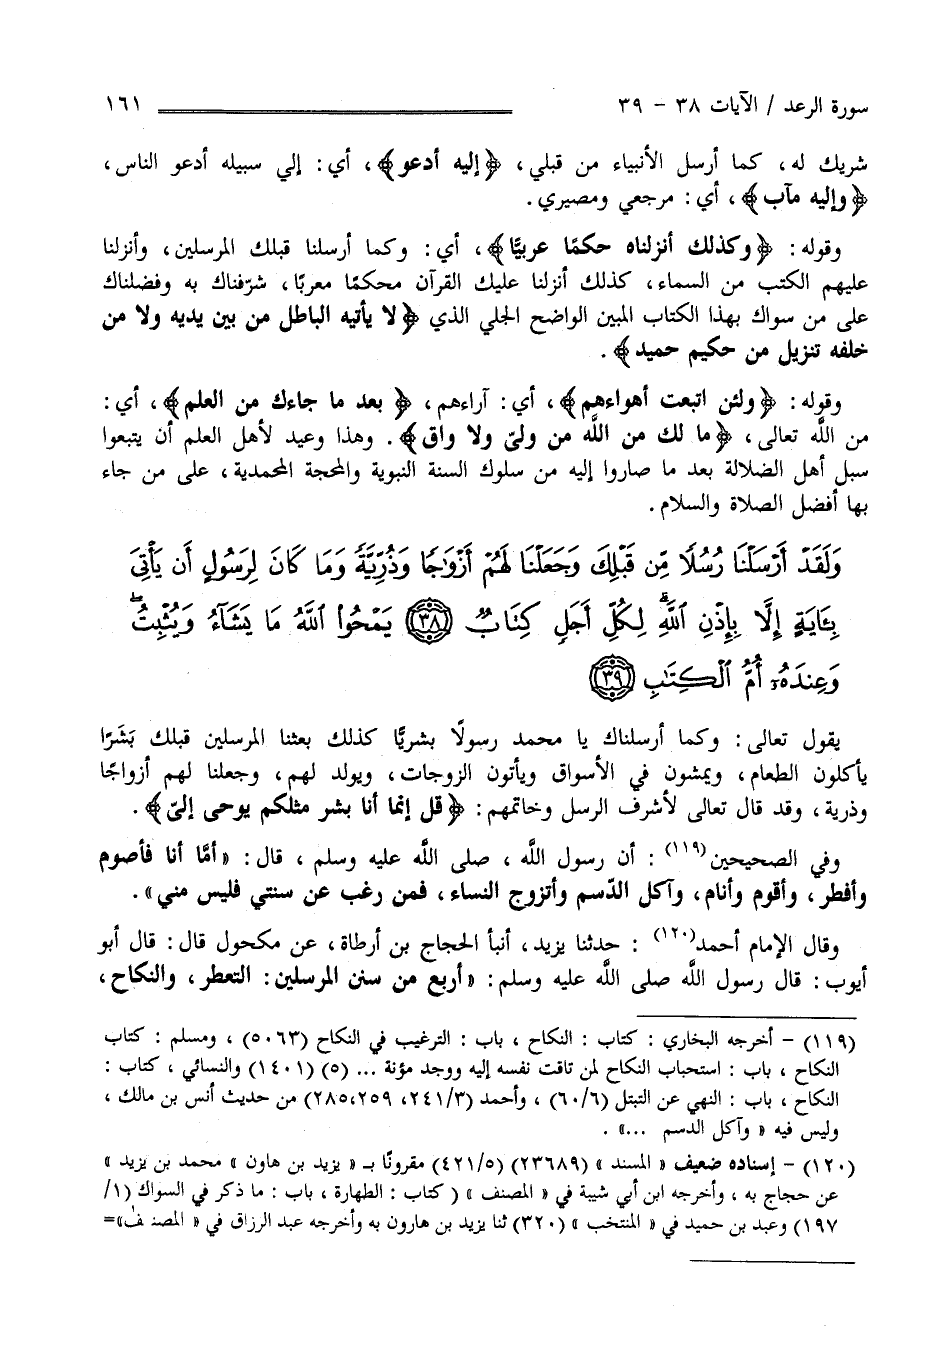 سورة الرعد / الآيات ٣٨ - ٣٩ ١٦١
شريك له، كما أرسل الأنبياء من قبلي، ﴿إليه أدعو﴾، أي: إلي سبيله أدعو الناس،
﴿وإليه مآب﴾، أي: مرجعي ومصيري.
وقوله: ﴿وكذلك أنزلناه حكمًا عربيًّا﴾، أي: وكما أرسلنا قبلك المرسلين، وأنزلنا
عليهم الكتب من السماء، كذلك أنزلنا عليك القرآن محكمًا معربًا، شرّفناك به وفضلناك
على من سواك بهذا الكتاب المبين الواضح الجلي الذي ﴿لا يأتيه الباطل من بين يديه ولا من
خلفه تنزيل من حكيم حميد﴾.
وقوله: ﴿ولئن اتبعت أهواءهم﴾، أي: آراءهم، ﴿بعد ما جاءك من العلم﴾، أي:
من اللَّه تعالى، ﴿ما لك من اللَّه من وليّ ولا واق﴾. وهذا وعيد لأهل العلم أن يتبعوا
سبل أهل الضلالة بعد ما صاروا إليه من سلوك السنة النبوية والمحجة المحمدية، على من جاء
بها أفضل الصلاة والسلام.
وَلَقَدْ أَرْسَلْنَا رُسُلًا مِّن قَبْلِكَ وَجَعَلْنَا لَهُمْ أَزْوَٰجًا وَذُرِّيَّةً وَمَا كَانَ لِرَسُولٍ أَن يَأْتِىَ
بِـَٔايَةٍ إِلَّا بِإِذْنِ ٱللَّهِ لِكُلِّ أَجَلٍ كِتَابٌ ﴿٣٨﴾ يَمْحُوا۟ ٱللَّهُ مَا يَشَآءُ وَيُثْبِتُ
وَعِندَهُۥٓ أُمُّ ٱلْكِتَٰبِ ﴿٣٩﴾
يقول تعالى: وكما أرسلناك يا محمد رسولًا بشريًّا كذلك بعثنا المرسلين قبلك بَشَرًا
يأكلون الطعام، ويمشون في الأسواق ويأتون الزوجات، ويولد لهم، وجعلنا لهم أزواجًا
وذرية، وقد قال تعالى لأشرف الرسل وخاتمهم: ﴿قل إنما أنا بشر مثلكم يوحى إليّ﴾.
وفي الصحيحين(١١٩): أن رسول اللَّه، صلى اللَّه عليه وسلم، قال: «أمَّا أنا فأصوم
وأفطر، وأقوم وأنام، وآكل الدّسم وأتزوج النساء، فمن رغب عن سنتي فليس مني».
وقال الإمام أحمد(١٢٠): حدثنا يزيد، أنبأ الحجاج بن أرطاة، عن مكحول قال: قال أبو
أيوب: قال رسول اللَّه صلى اللَّه عليه وسلم: «أربع من سنن المرسلين: التعطر، والنكاح،
(١١٩) - أخرجه البخاري: كتاب: النكاح، باب: الترغيب في النكاح (٥٠٦٣)، ومسلم: كتاب
النكاح، باب: استحباب النكاح لمن تاقت نفسه إليه ووجد مؤنة ... (٥) (١٤٠١) والنسائي، كتاب:
النكاح، باب: النهي عن التبتل (٦٠/٦)، وأحمد (٢٤١/٣، ٢٥٩، ٢٨٥) من حديث أنس بن مالك،
وليس فيه «وآكل الدسم ...».
(١٢٠) - إسناده ضعيف «المسند» (٢٣٦٨٩) (٤٢١/٥) مقرونًا بـ «يزيد بن هاون» محمد بن يزيد»
عن حجاج به، وأخرجه ابن أبي شيبة في «المصنف» (كتاب: الطهارة، باب: ما ذكر في السواك (١/
١٩٧) وعبد بن حميد في «المنتخب» (٣٢٠) ثنا يزيد بن هارون به وأخرجه عبد الرزاق في «المصنف»=